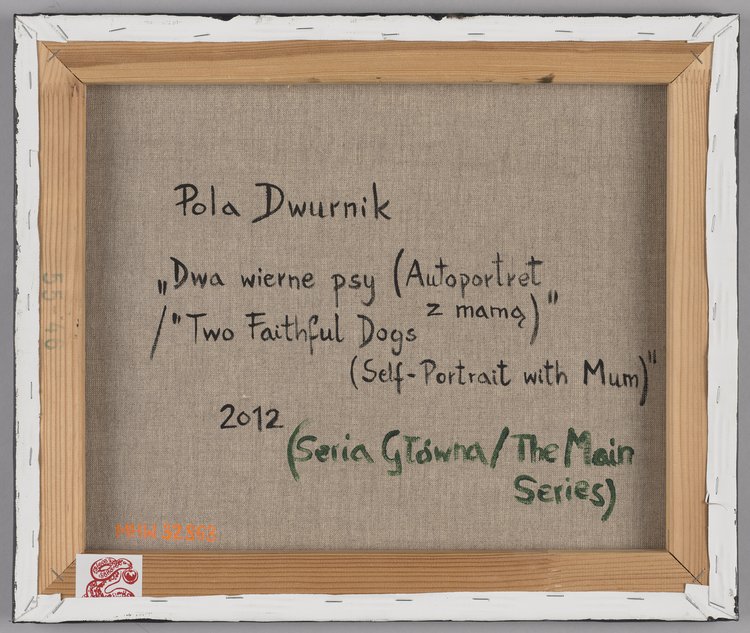 Pola Dwurnik
„Dwa wierne psy (Autoportret
z mamą)"
/"Two Faithful Dogs
(Self-Portrait with Mum)"
2012
(Seria Główna/The Main
Series)
55 46